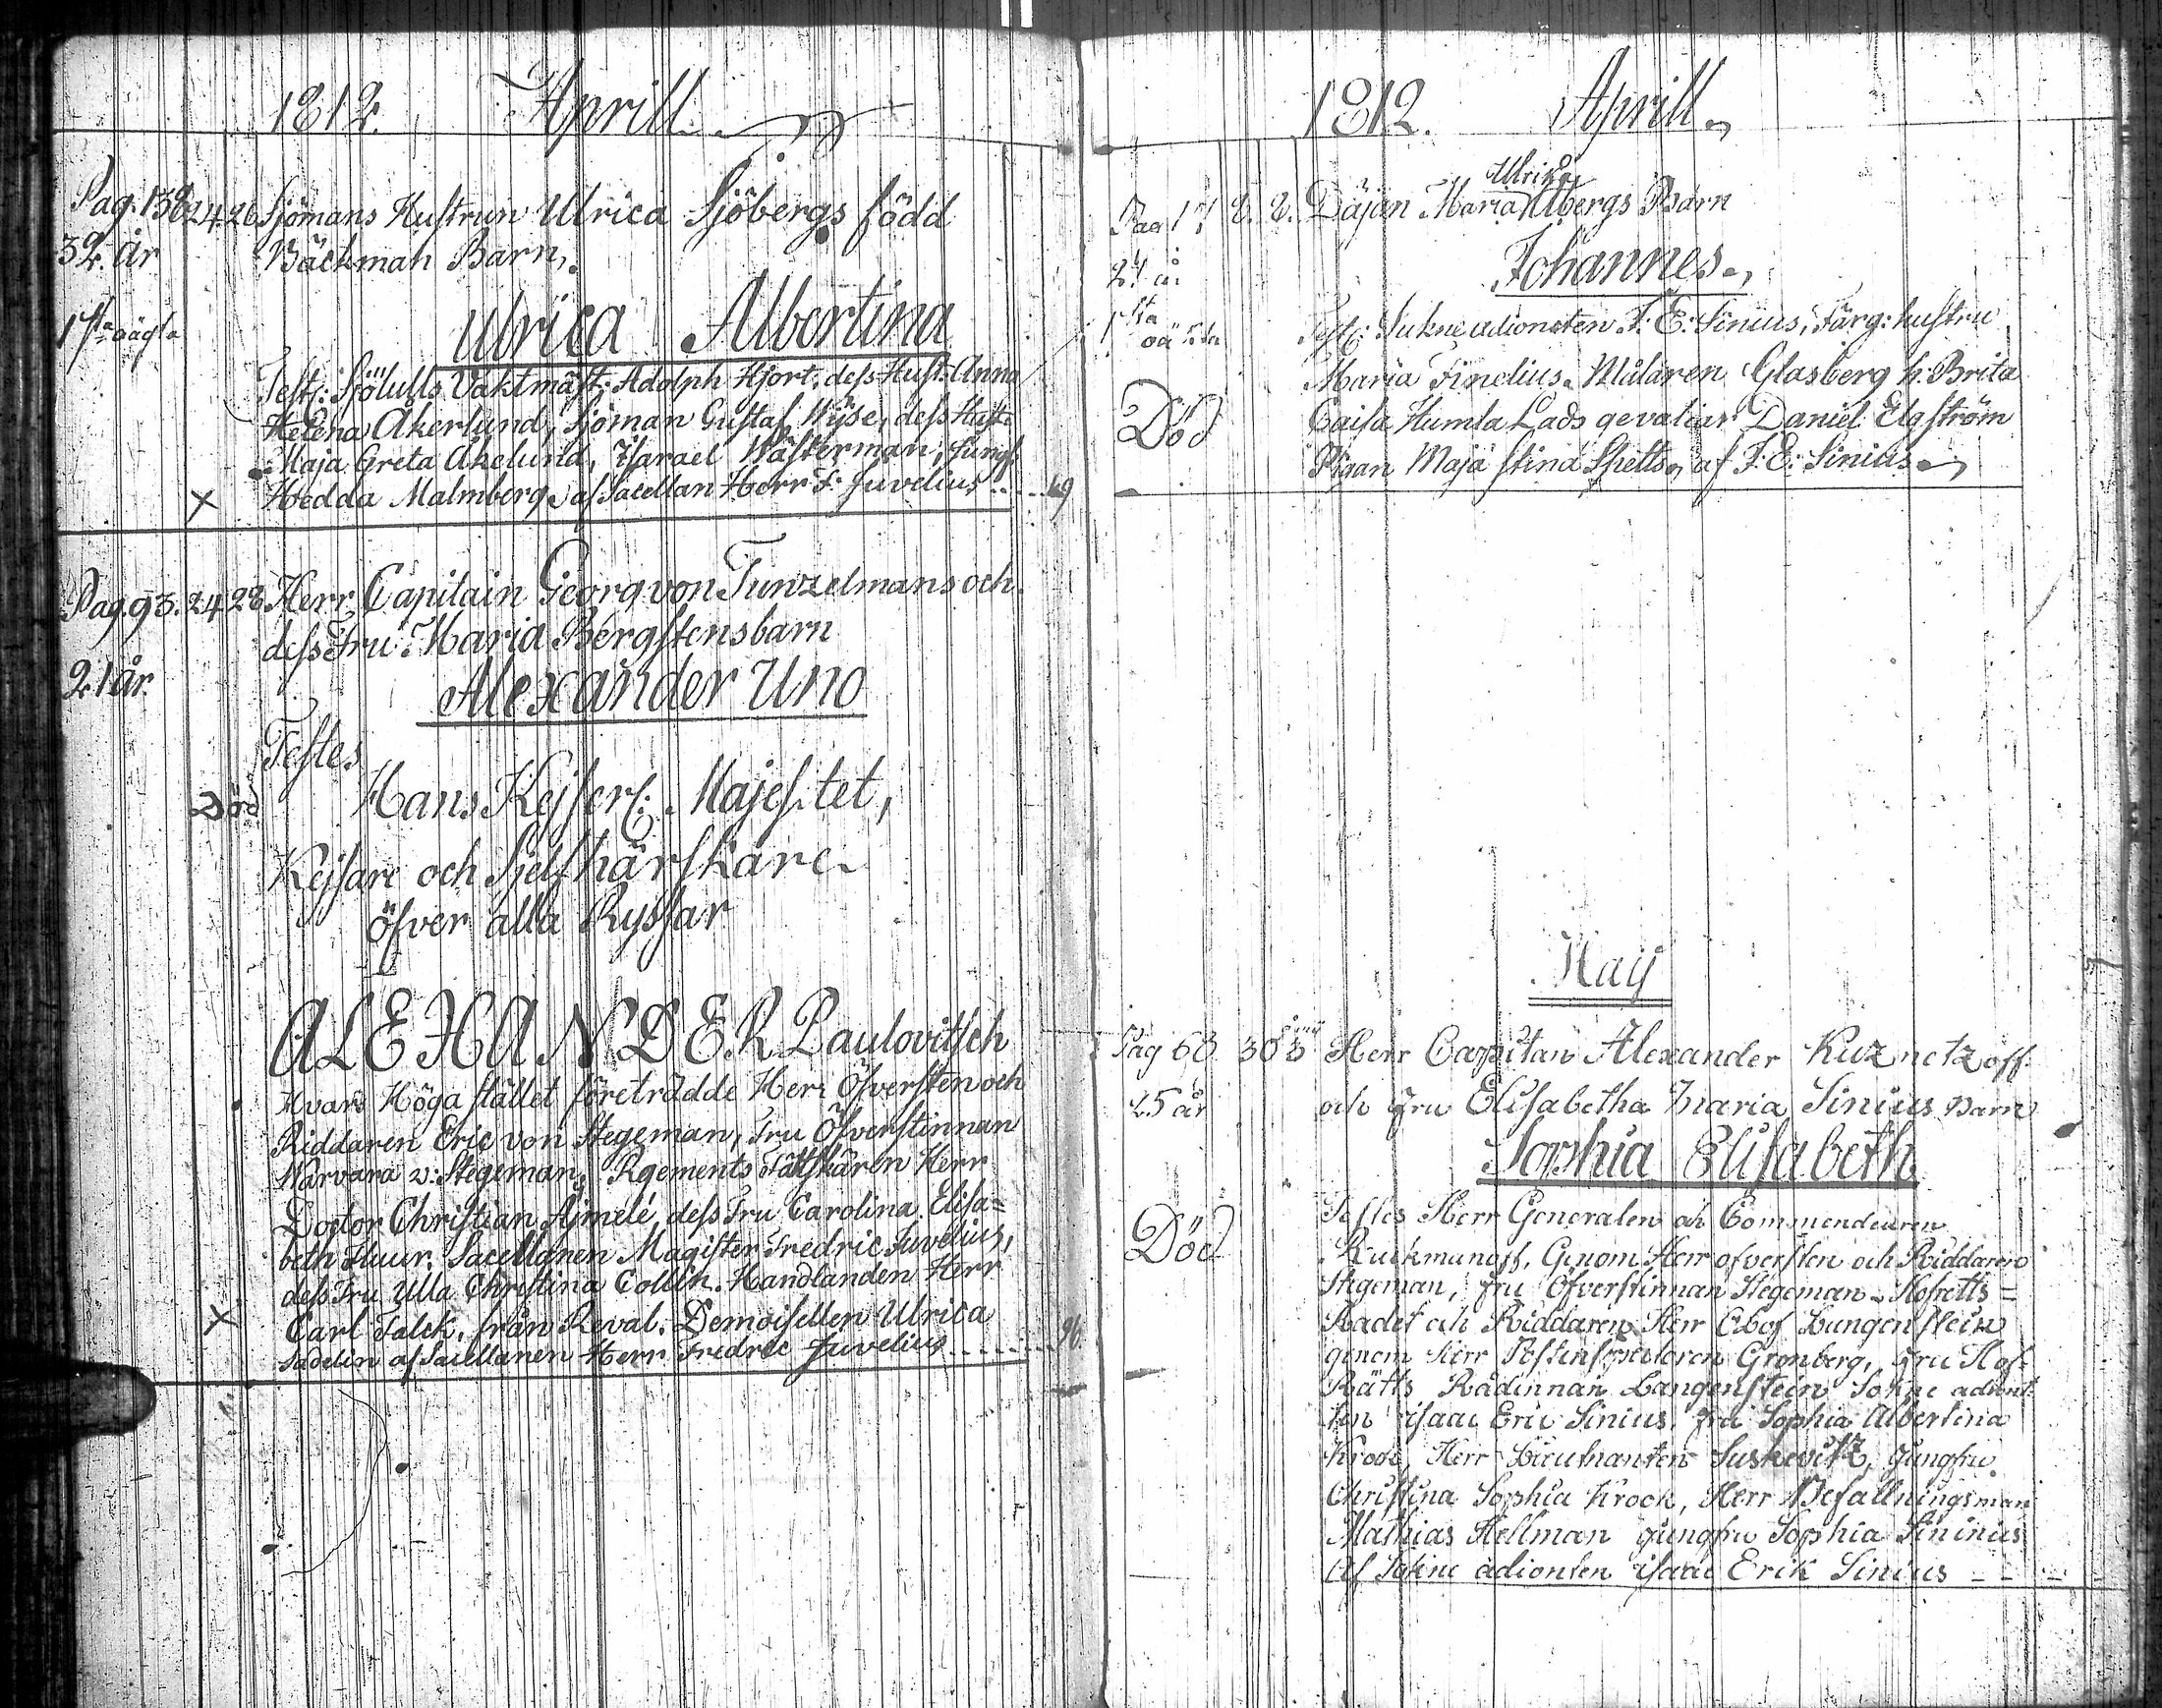 1812. Aprill
Pag. 138 24. 26 Sjömans Hustrun Ulrica Sjöbergs född
32. år Bäckman Barn.
Ulrica Albertina
1sta oägta
Test: Sjötulls Vaktmäst: Adolph Hjort, dess Hust: Anna
Helena Åkerlund, Sjöman Gustaf Wijse, dess Hust:
Maja Greta Åkelund, Isarael Wästerman, Jungf:
× Hedda Malmberg af Sacellan Herr F: Juvelius
Pag. 93. 24 28 Herr Capitain Georg von Tunzelmans och
dess Fru Maria Bergstens barn
21 år. Alexander Uno
Testes
Död Hans Kejserl: Majestet,
Kejsare och Sjelfhärskare
öfver alla Ryssar
ALEXANDER Paulovitsch
Hvars Höga stället företrädde Herr Öfversten och
Riddaren Eric von Stegeman, Fru Öfverstinnan
Warvara v: Stegeman, Rgements Fältskären Herr
Doctor Christian Ajmelé dess Fru Carolina Elisa=
beth Huur. Sacellanen Magister Fredric Juvelius,
dess Fru Ulla Christina Collin. Handlanden Herr
× Carl Falck, från Reval. Demoisellen Ulrica
Sadelin af Sacellanen Herr Fredric Juvelius 96.
1812. Aprill
Ulrika
Pag 17 8. 8. Däjan Maria Albergs Barn
27 år Johannes
1sta oäkta Test: Sukne adioncten F: E: Sinius, Färg: hustru
Maria Finelius. Målaren Glasberg h: Brita
Död Caisa Humla Lads gevaliar Daniel Elgström
Pigan Maja Stina Spetts af F: E: Sinius
Maij
Pag 68 30 5 Herr Capitan Alexander Kuznetzoff
25 år och Fru Elisabetha Maria Sinius Barn
Sophia Elisabeth
Testes Herr Generalen och Commendeuren
Död Ruckmanoff, Ginom Herr ofversten och Riddaren
Stegeman, Fru Öfverstinnan Stegeman Hofretts=
Rådet och Riddaren Herr Langenstein
genom Herr Postinspectoren Gronberg, Fru Hof-
Rätts Rådinnan Langenstein Sokne adionc-
ten isaac Eric Sinius, Fru Sophia Albertina
Krook, Herr Lieutnanten Suskevitz, Jungfru
Christina Sophia Krook, Herr Befallningsman
Mathias Hellman jungfru Sophia Sininus
Af Sokne adioncten isaac Erik Sinius